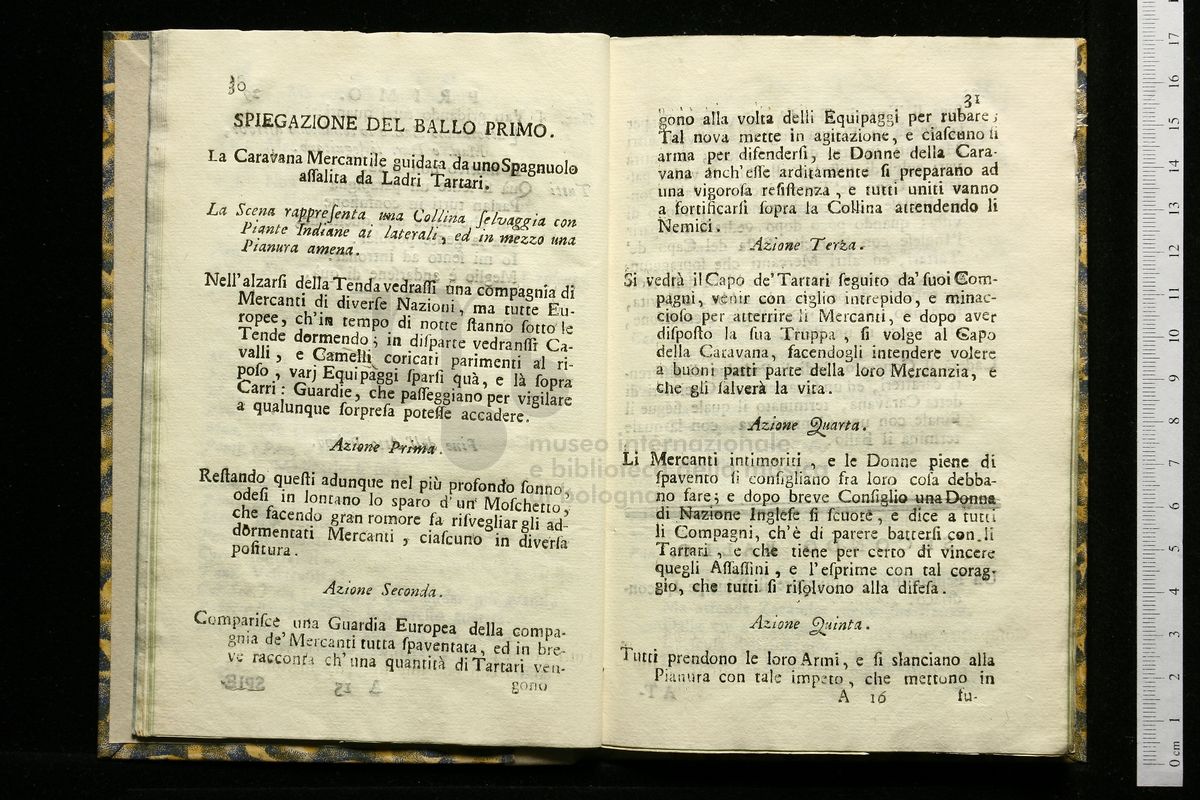 30
SPIEGAZIONE DEL BALLO PRIMO.
La Caravana Mercantile guidata da uno Spagnuolo
aſſalita da Ladri Tartari.
La Scena rappreſenta una Collina ſelvaggia con
Piante Indiane ai laterali, ed in mezzo una
Pianura amena.
Nell'alzarſi della Tenda vedraſſi una compagnia di
Mercanti di diverſe Nazioni, ma tutte Eu-
ropee, ch'in tempo di notte ſtanno ſotto le
Tende dormendo; in diſparte vedranſſi Ca-
valli, e Camelli coricati parimenti al ri-
poſo, varj Equipaggi ſparſi quà, e là ſopra
Carri: Guardie, che paſſeggiano per vigilare
a qualunque ſorpreſa poteſſe accadere.
Azione Prima.
Reſtando queſti adunque nel più profondo ſonno,
odeſi in lontano lo sparo d'un' Moſchetto,
che facendo gran romore fa riſvegliar gli ad-
dormentati Mercanti, ciaſcuno in diverſa
poſitura.
Azione Seconda.
Compariſce una Guardia Europea della compa-
gnia de' Mercanti tutta ſpaventata, ed in bre-
ve racconta ch'una quantità di Tartari ven-
gono
31
gono alla volta delli Equipaggi per rubare;
Tal nova mette in agitazione, e ciaſcuno ſi
arma per difenderſi, le Donne della Cara-
vana anch'eſſe arditamente ſi preparano ad
una vigoroſa reſiſtenza, e tutti uniti vanno
a fortificarſi ſopra la Collina attendendo li
Nemici.
Azione Terza.
Si vedrà il Capo de' Tartari ſeguito da' ſuoi Com-
pagni, venir con ciglio intrepido, e minac-
cioſo per atterrire li Mercanti, e dopo aver
diſpoſto la ſua Truppa, ſi volge al Capo
della Caravana, facendogli intendere volere
a buoni patti parte della loro Mercanzia, e
che gli ſalverà la vita.
Azione Quarta.
Li Mercanti intimoriti, e le Donne piene di
ſpavento ſi conſigliano fra loro coſa debba-
no fare; e dopo breve Conſiglio una Donna
di Nazione Ingleſe ſi ſcuote, e dice a tutti
li Compagni, ch'è di parere batterſi con li
Tartari, e che tiene per certo di vincere
quegli Aſſaſſini, e l'eſprime con tal corag-
gio, che tutti ſi riſolvono alla difeſa.
Azione Quinta.
Tutti prendono le loro Armi, e ſi slanciano alla
Pianura con tale impeto, che mettono in
A 16
fu-
museo internazionale
e biblioteca della musica
di bologna
0 cm 1 2 3 4 5 6 7 8 9 10 11 12 13 14 15 16 17